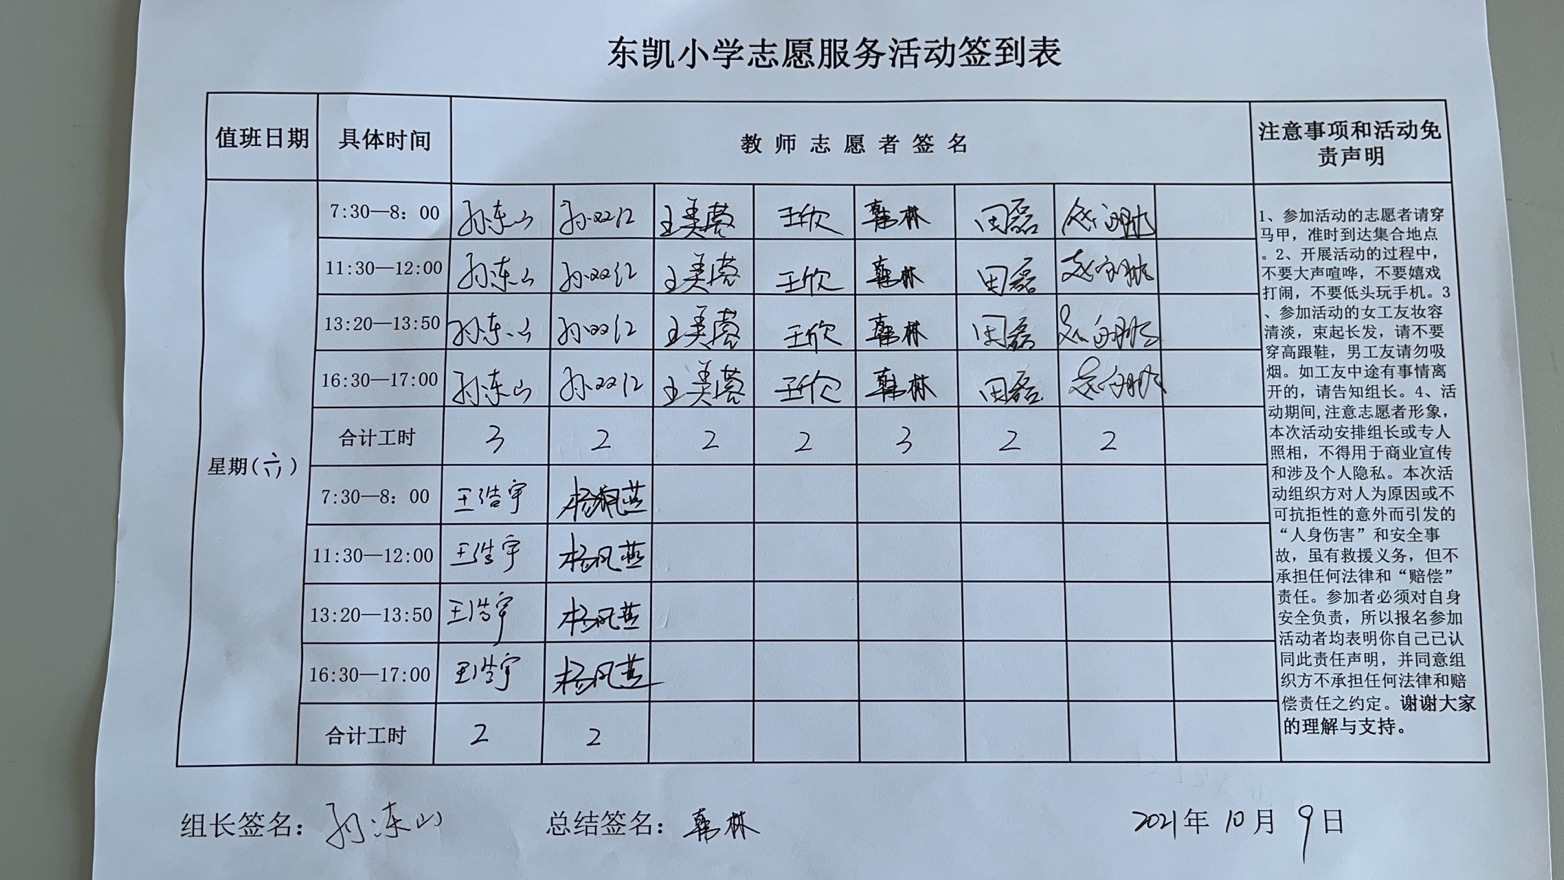 东凯小学志愿服务活动签到表
值班日期 具体时间 教师志愿者签名 注意事项和活动免责声明
星期(六)
7:30—8：00 孙东山 孙双江 王美蓉 王欣 韩林 田磊
11:30—12:00 孙东山 孙双江 王美蓉 王欣 韩林 田磊
13:20—13:50 孙东山 孙双江 王美蓉 王欣 韩林 田磊
16:30—17:00 孙东山 孙双江 王美蓉 王欣 韩林 田磊
合计工时 3 2 2 2 3 2 2
7:30—8：00 王浩宇 杨凤燕
11:30—12:00 王浩宇 杨凤燕
13:20—13:50 王浩宇 杨凤燕
16:30—17:00 王浩宇 杨凤燕
合计工时 2 2
1、参加活动的志愿者请穿
马甲，准时到达集合地点
。2、开展活动的过程中，
不要大声喧哗，不要嬉戏
打闹，不要低头玩手机。3
、参加活动的女工友妆容
清淡，束起长发，请不要
穿高跟鞋，男工友请勿吸
烟。如工友中途有事情离
开的，请告知组长。4、活
动期间,注意志愿者形象，
本次活动安排组长或专人
照相，不得用于商业宣传
和涉及个人隐私。本次活
动组织方对人为原因或不
可抗拒性的意外而引发的
“人身伤害”和安全事
故，虽有救援义务，但不
承担任何法律和“赔偿”
责任。参加者必须对自身
安全负责，所以报名参加
活动者均表明你自己已认
同此责任声明，并同意组
织方不承担任何法律和赔
偿责任之约定。谢谢大家
的理解与支持。
组长签名：孙东山 总结签名：韩林 2021年10月9日